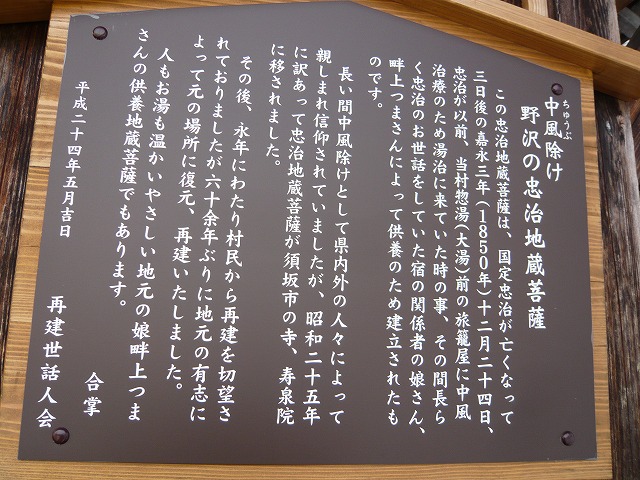 ちゅうぶ
中風除け
野沢の忠治地蔵菩薩
この忠治地蔵菩薩は、国定忠治が亡くなって
三日後の嘉永三年(1850年)十二月二十四日、
忠治が以前、当村惣湯(大湯)前の旅籠屋に中風
治療のため湯治に来ていた時の事、その間長ら
く忠治のお世話をしていた宿の関係者の娘さん、
畔上つまさんによって供養のため建立されたも
のです。
長い間中風除けとして県内外の人々によって
親しまれ信仰されていましたが、昭和二十五年
に訳あって忠治地蔵菩薩が須坂市の寺、寿泉院
に移されました。
その後、永年にわたり村民から再建を切望さ
れておりましたが六十余年ぶりに地元の有志に
よって元の場所に復元、再建いたしました。
人もお湯も温かいやさしい地元の娘畔上つま
さんの供養地蔵菩薩でもあります。
平成二十四年五月吉日
合掌
再建世話人会